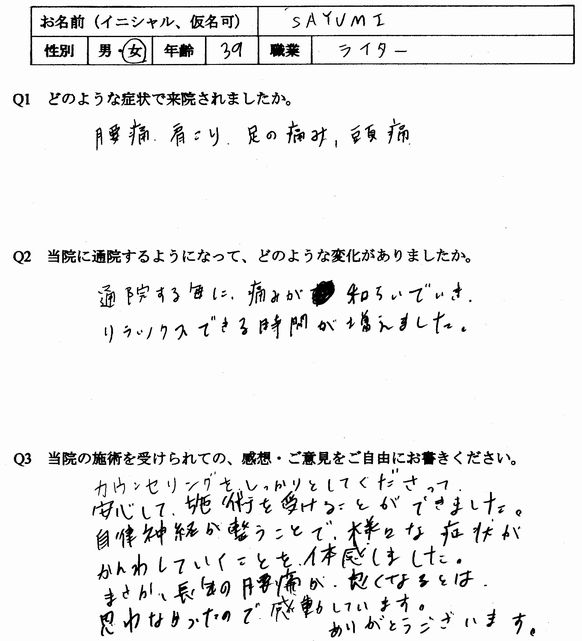 お名前（イニシャル、仮名可） SAYUMI
性別 男・女 年齢 39 職業 ライター
Q1 どのような症状で来院されましたか。
腰痛、肩こり、足の痛み、頭痛
Q2 当院に通院するようになって、どのような変化がありましたか。
通院する毎に、痛みが 和らいでいき、
リラックスできる時間が増えました。
Q3 当院の施術を受けられての、感想・ご意見をご自由にお書きください。
カウンセリングをしっかりとしてくださって、
安心して、施術を受けることができました。
自律神経が整うことで、様々な症状が
かんわしていくことを、体感しました。
まさか、長年の腰痛が、良くなるとは、
思わなかったので、感動しています。
ありがとうございます。